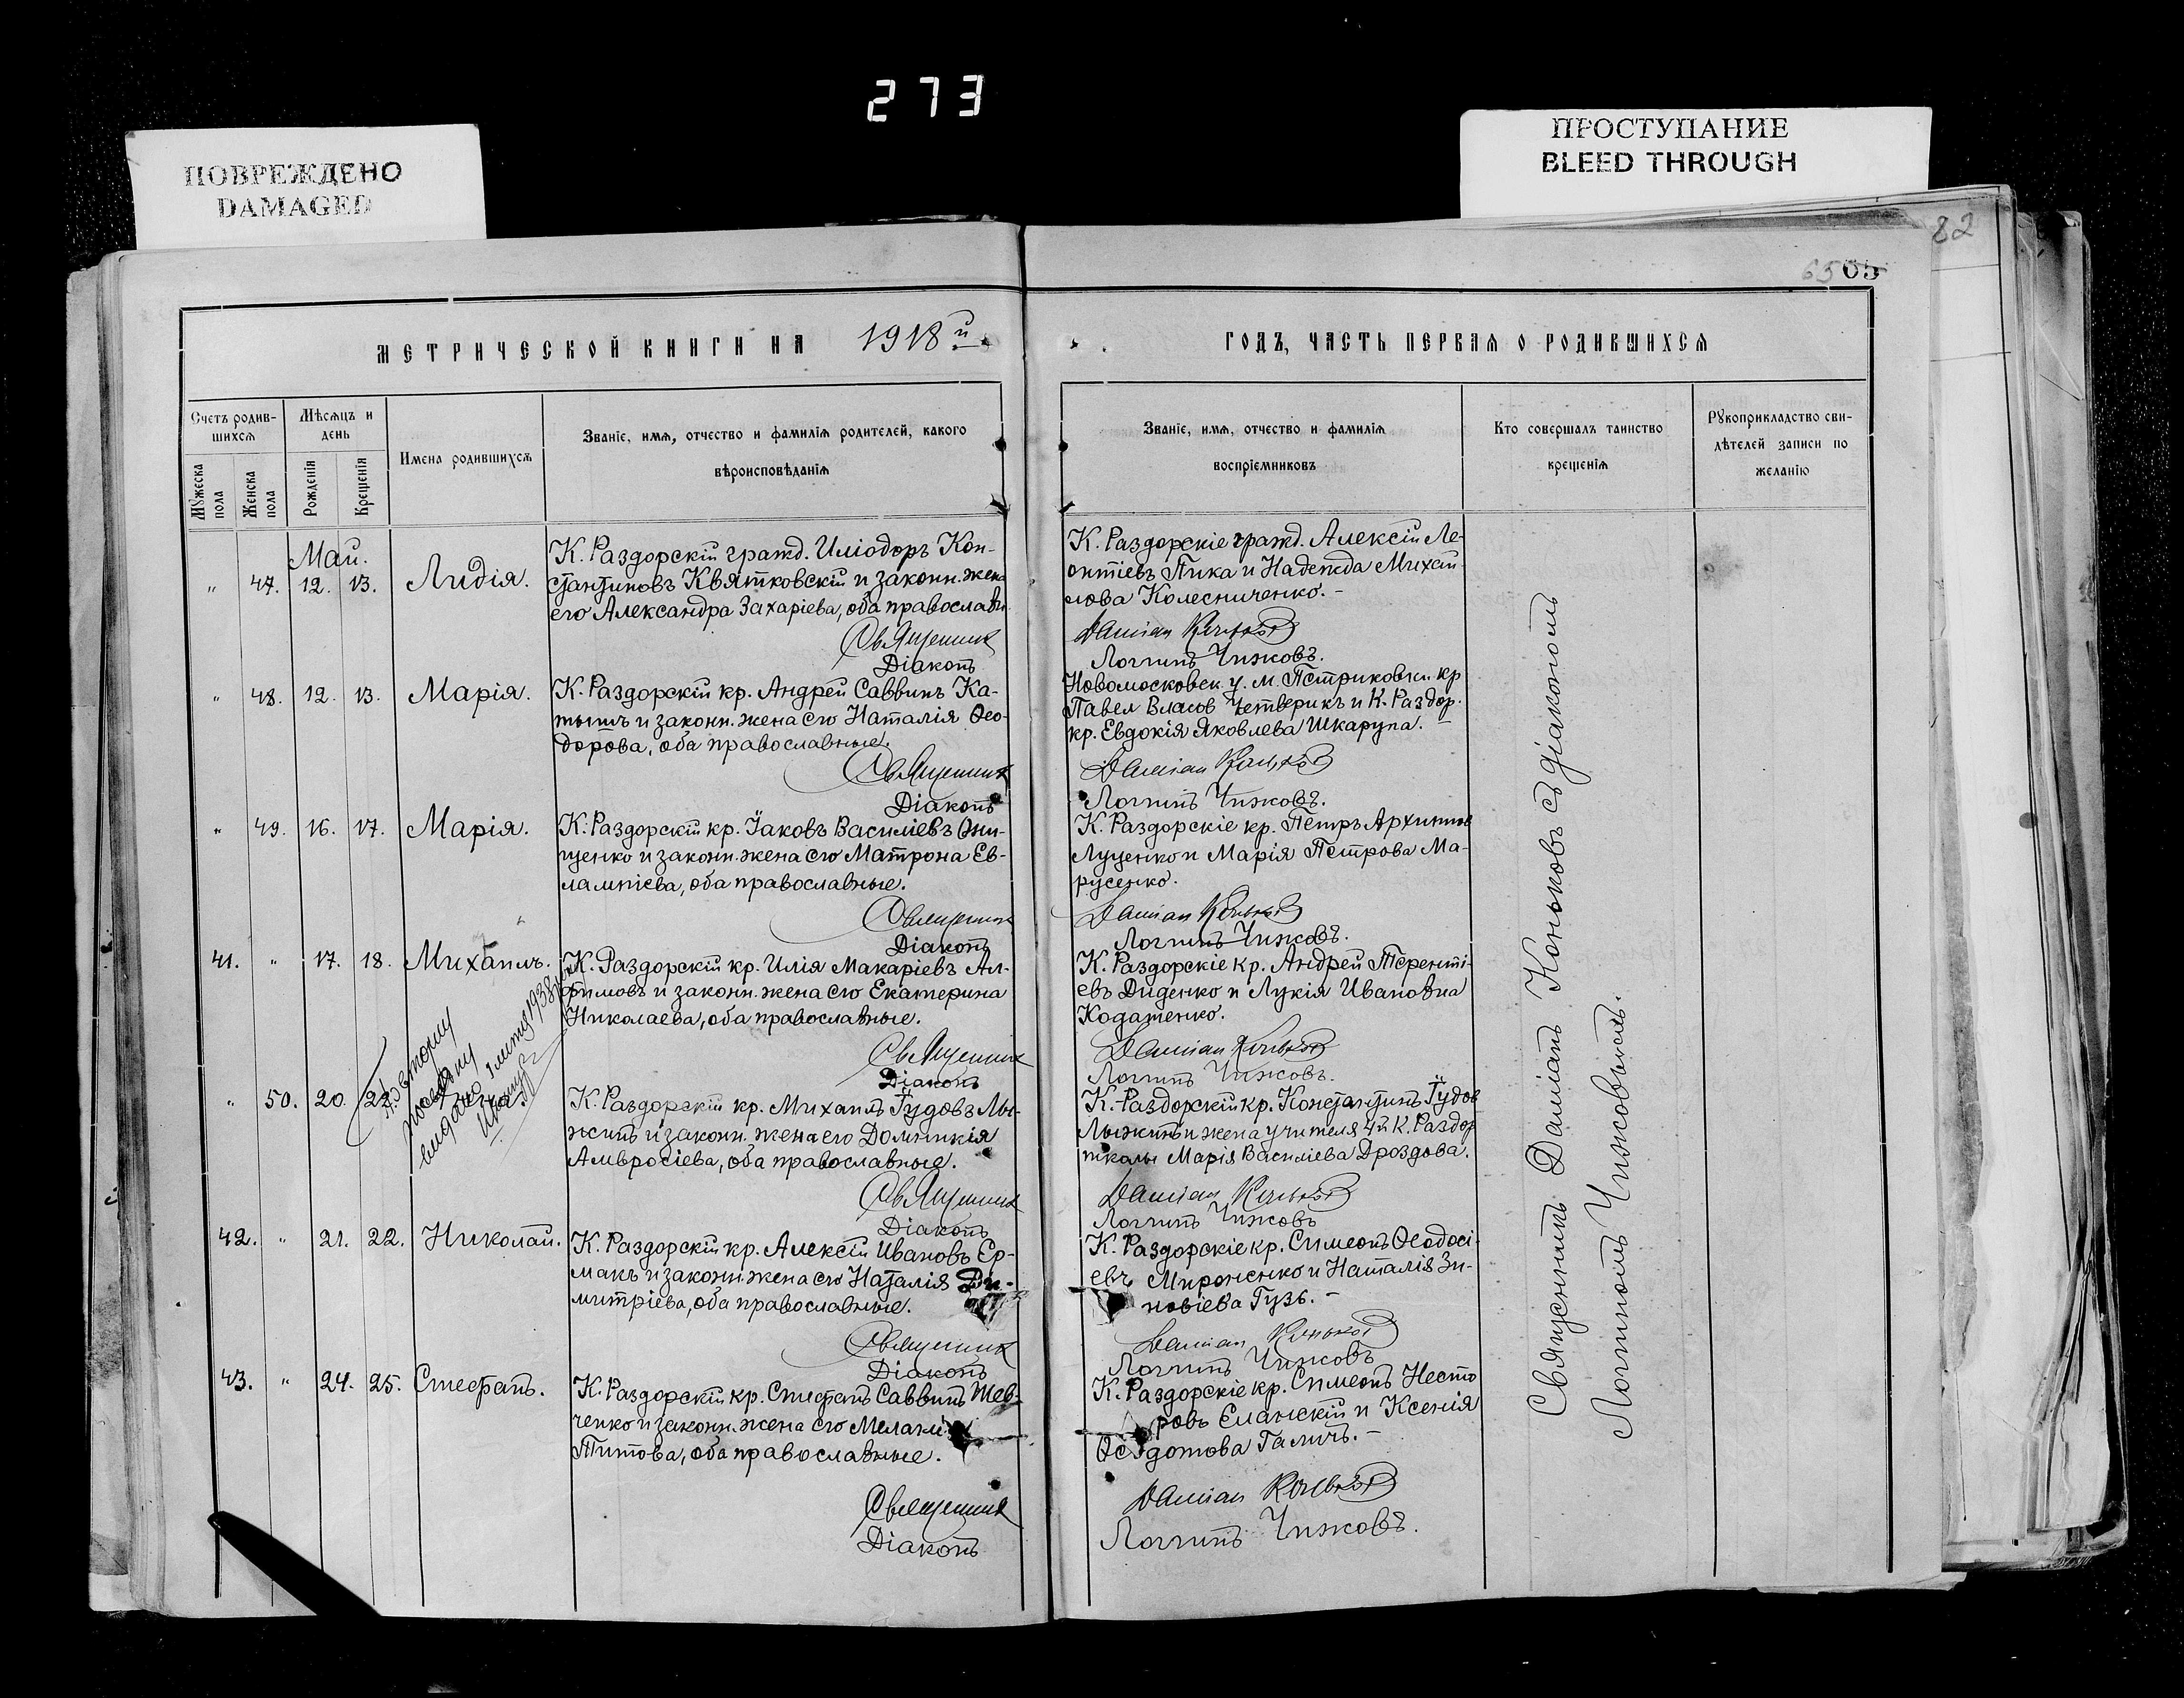 273
ПОВРЕЖДЕНО
DAMAGED
ПРОСТУПАНИЕ
BLEED THROUGH
82
65
МЕТРИЧЕСКОЙ КНИГИ НА 1918 й
ГОДЪ, ЧАСТЬ ПЕРВАЯ О РОДИВШИХСЯ
Счетъ родив-
шихся
Мужеска пола
Женска пола
Мѣсяцъ и
день
Рожденія
Крещенія
Имена родившихся
Званіе, имя, отчество и фамилія родителей, какого
вѣроисповѣданія
Званіе, имя, отчество и фамилія
воспріемниковъ
Кто совершалъ таинство
крещенія
Рукоприкладство сви-
дѣтелей записи по
желанію
Май.
" 47. 12. 13. Лидія.
К. Раздорскій гражд. Иліодоръ Кон-
стантиновъ Квятковскій и законн. жена
его Александра Захаріева, оба православн.
Священник
Діаконъ
К. Раздорскіе гражд. Алексій Ле-
онтіевъ Пика и Надежда Михай
лова Колесниченко. –
Даміан Коньков
Логгинъ Чижовъ.
" 48. 12. 13. Марія.
К. Раздорскій кр. Андрей Саввинъ Ка-
тышъ и законн. жена его Наталія Ѳео-
дорова, оба православные.
Священник
Діаконъ
Новомосковск. у. м. Петриковки кр
Павел Власов Четверикъ и К. Раздор.
кр. Евдокія Яковлева Шкарупа. –
Даміан Коньков
Логгинъ Чижовъ.
" 49. 16. 17. Марія.
К. Раздорскій кр. Іаковъ Василіевъ
щенко и законн. жена его Матрона Ев-
лампіева, оба православные.
Священник
Діаконъ
К. Раздорскіе кр. Петръ Архиппов
Луценко и Марія Петрова Ма-
русенко.
Даміан Коньков
Логгинъ Чижовъ.
41. " 17. 18. Михаилъ.
К. Раздорскій кр. Илія Макаріевъ Ал-
фимовъ и законн. жена его Екатерина
Николаева, оба православные.
Священник
Діаконъ
К. Раздорскіе кр. Андрей Теренті-
евъ Диденко и Лукія Ивановна
Кодаченко.
Даміан Коньков
Логгинъ Чижовъ.
" 50. 20.
видано 1938
К. Раздорскій кр. Михаилъ Іудовъ Лы-
житъ и законн. жена его Домникія
Амвросіева, оба православные.
Священник
Діаконъ
К. Раздорскій кр. Константинъ Іудов
Лыжитъ и жена учителя 4й К. Раздор
школы Марія Василіева Дроздова.
Даміан Коньков
Логгинъ Чижовъ
42. " 21. 22. Николай.
К. Раздорскій кр. Алексій Ивановъ Ер-
макъ и законн. жена его Наталія Ди-
митріева, оба православные.
Священник
Діаконъ
К. Раздорскіе кр. Симеонъ Ѳеодосі-
евъ Мироненко и Наталія Зи-
новіева Гузь. –
Даміан Коньков
Логгинъ Чижовъ
43. " 24. 25. Стефанъ.
К. Раздорскій кр. Стефанъ Саввинъ Шев-
ченко и законн. жена его Мелані
Титова, оба православные.
Священник
Діаконъ
К. Раздорскіе кр. Симеонъ Несто
ровъ Еланскій и Ксенія
Ѳеодотова Галичъ. –
Даміан Коньков
Логгинъ Чижовъ.
Священникъ Даміанъ Коньковъ съ діакономъ
Логгиномъ Чижовымъ.